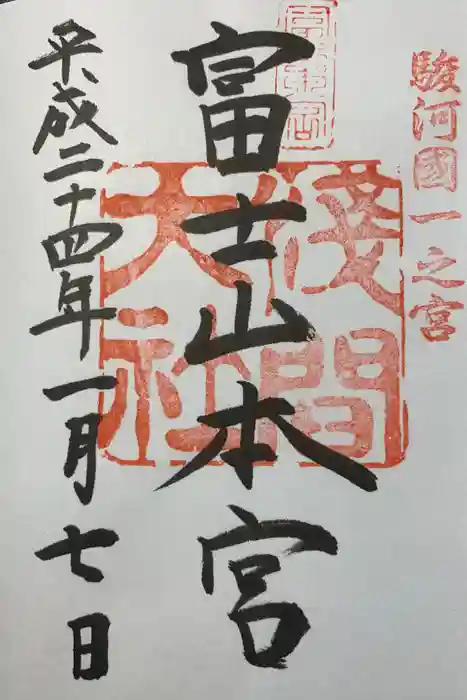 駿河國一之宮
富士山本宮
淺間
大社
平成二十四年一月七日